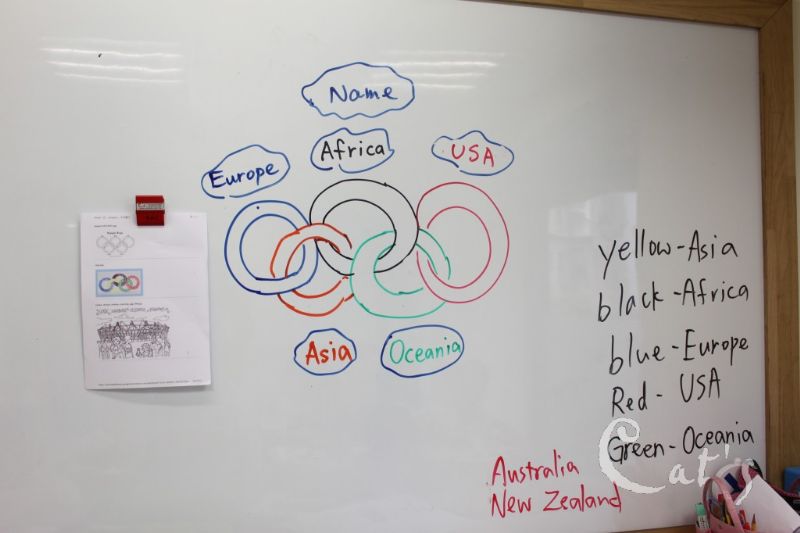 Name
Africa
USA
Europe
Asia
Oceania
yellow-Asia
black-Africa
blue-Europe
Red- USA
Green-Oceania
Australia
New Zealand
Cat's